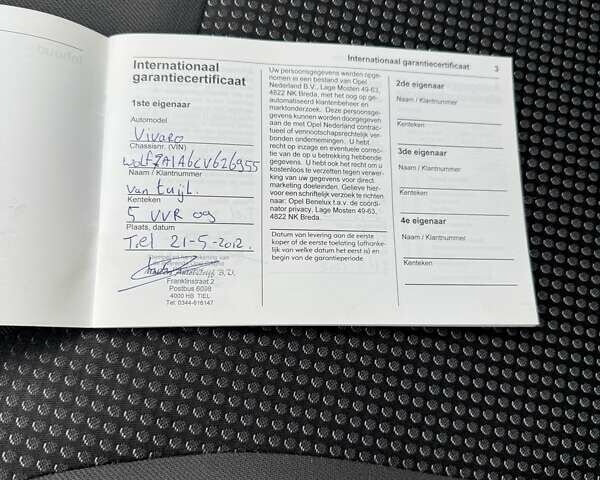 Inhoud
Internationaal garantiecertificaat 3
Internationaal
garantiecertificaat
1ste eigenaar
Automodel
Vivaro
Chassisnr. (VIN)
Naam / Klantnummer
van tuijl.
Kenteken
5 VVR 09
Plaats, datum
Tiel 21-5-2012.
Franklinstraat 2
Postbus 6098
4000 HB TIEL
Tel: 0344-616147
Uw persoonsgegevens werden opge-
nomen in een bestand van Opel
Nederland B.V., Lage Mosten 49-63,
4822 NK Breda, met het oog op ge-
automatiseerd klantenbeheer en
marktonderzoek. Deze persoonsge-
gevens kunnen worden doorgegeven
aan de met Opel Nederland contrac-
tueel of vennootschapsrechtelijk ver-
bonden ondernemingen. U hebt
recht op inzage en eventuele correc-
tie van de op u betrekking hebbende
gegevens. U hebt ook het recht om u
kosteloos te verzetten tegen verwer-
king van uw gegevens voor direct
marketing doeleinden. Gelieve hier-
voor een schriftelijk verzoek te richten
naar: Opel Benelux t.a.v. de coördi-
nator privacy, Lage Mosten 49-63,
4822 NK Breda.
Datum van levering aan de eerste
koper of de eerste toelating (afhanke-
lijk van welke datum het eerst is) en
begin van de garantieperiode
2de eigenaar
Naam / Klantnummer
Kenteken
3de eigenaar
Naam / Klantnummer
Kenteken
4e eigenaar
Naam / Klantnummer
Kenteken